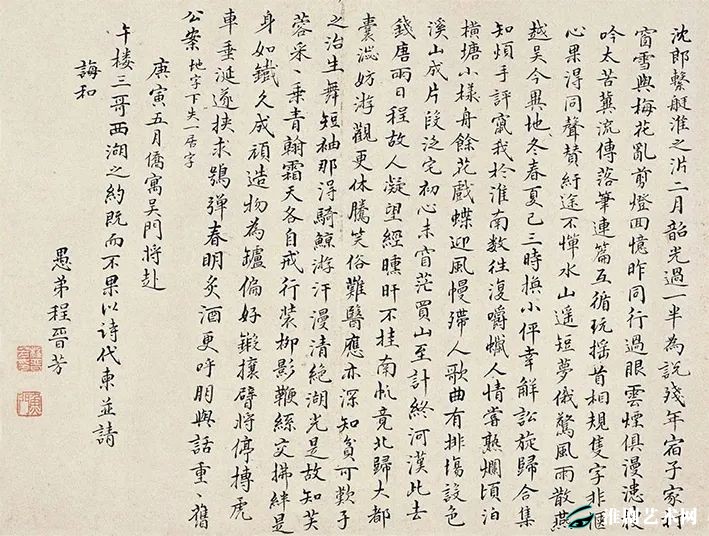 沈郎繫艇淮之沜二月韶光過一半為說殘年宿子家
窗雪與梅花亂剪燈回憶昨同行過眼雲煙俱漫漶
吟太苦冀流傳落筆連篇互循玩搖首相規隻字非愜
心果得同聲贊紆途不憚水山遥短夢俄驚風雨散燕
越吳今異地冬春夏已三時換小伻幸解訟旋歸合集
知煩手評竄我於淮南數往復嚼蠟人情嘗熟爛頃泊
橫塘小樣舟餘花戲蝶迎風幔殢人歌曲有排場設色
溪山成片段泛宅初心未窅茫買山至計終河漢此去
錢唐兩日程故人凝望經曛旰不挂南帆竟北歸大都
囊澁妨游觀更休騰笑俗難醫應亦深知貧可歎子
之治生舞短袖那得騎鯨游汗漫清絕湖光是故知芙
蓉采、乘青翰霜天各自戒行裝柳影鞭絲交拂絆是
身如鐵久成頑造物為鑪偏好鍛攘臂將停搏虎
車垂涎遂挾求鴞彈春明炙酒更呼朋與話重、舊
公案 地字下失一居字
庚寅五月僑寓吳門將赴
午樓三哥西湖之約既而不果以詩代柬並請
誨和
愚弟程晉芳
淮剧艺术网